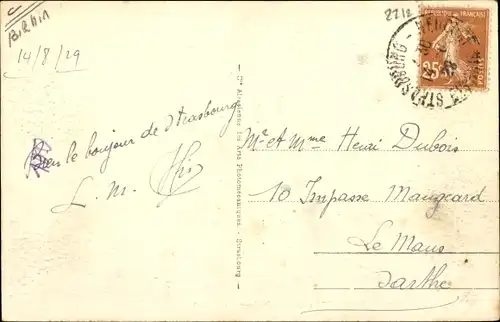 BtRhin
2210
14/8/29
RÉPUBLIQUE FRANÇAISE
25
STRASBOURG
Bien le bonjour de Strasbourg
L. M.
Cie Alsacienne des Arts Photomécaniques. - Strasbourg -
Mr et Mme Henri Dubois
10 Impasse Maugeard
Le Mans
Sarthe